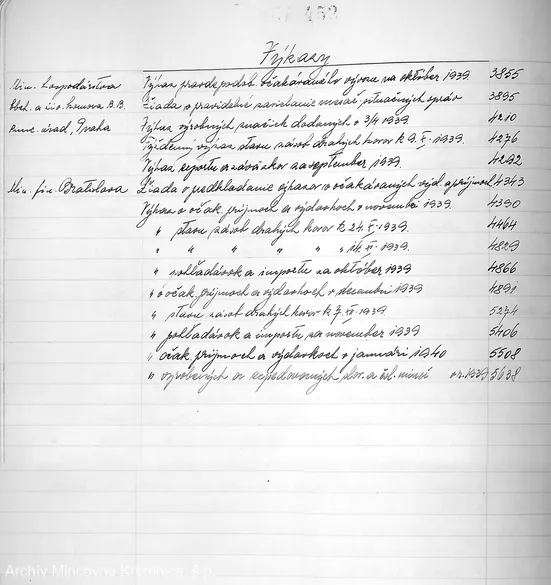 Výkazy
Min. hospodárstva Výkaz pravdepodob. očakávaného vývozu na október 1939 3855
Obch. a živ. komora B.B. Žiada o pravidelné zasielanie mesač. situačných správ 3895
Punc. úrad, Praha Výkaz výrobných značiek dodaných v 3/4 1939 4210
Týždenný výkaz stavu zásob drahých kovov k 9.X.1939. 4276
Výkaz exportu a záväzkov za september 1939. 4292
Min. fin. Bratislava Žiada o predkladanie výkazov o očakávaných výd. a príjmoch 4343
Výkaz o očak. príjmoch a výdavkoch v novembri 1939 4390
" stavu zásob drahých kovov k 24.X.1939. 4464
" " " " " 14.XI.1939. 4829
" pohľadávok a importu za október 1939 4866
" o očak. príjmoch a výdavkoch v decembri 1939 4891
" stavu zásob drahých kovov k 7.XII.1939 5274
" pohľadávok a importu za november 1939 5406
" očak. príjmoch a výdavkoch v januári 1940 5508
" vyrobených a expedovaných slov. a čsl. mincí v r. 1939 5638
Archív Mincovne Kremnica, š.p.